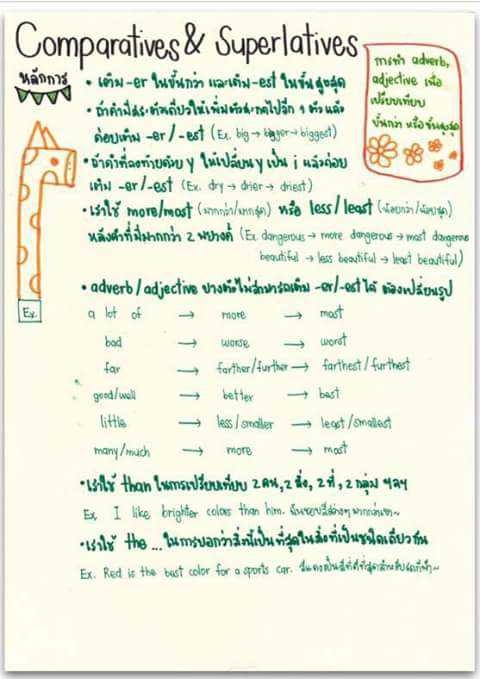 Comparatives & Superlatives
หลักการ
การทำ adverb,
adjective เพื่อ
เปรียบเทียบ
ขั้นกว่า หรือ ขั้นสุด
• เติม -er ในขั้นกว่า และเติม -est ในขั้นสูงสุด
• ถ้าคำมีสระตัวเดียวให้เพิ่มตัวสะกดไปอีก 1 ตัวแล้ว
ค่อยเติม -er/-est (Ex. big → bigger → biggest)
• ถ้าคำที่ลงท้ายด้วย y ให้เปลี่ยน y เป็น i แล้วค่อย
เติม -er/-est (Ex. dry → drier → driest)
• เราใช้ more/most (มากกว่า/มากสุด) หรือ less/least (น้อยกว่า/น้อยสุด)
หลังคำที่มีมากกว่า 2 พยางค์ (Ex. dangerous → more dangerous → most dangerous
beautiful → less beautiful → least beautiful)
Ex.
• adverb/adjective บางตัวไม่สามารถเติม -er/-est ได้ ต้องเปลี่ยนรูป
a lot of → more → most
bad → worse → worst
far → farther/further → farthest/furthest
good/well → better → best
little → less/smaller → least/smallest
many/much → more → most
• เราใช้ than ในการเปรียบเทียบ 2 คน, 2 สิ่ง, 2 ที่, 2 กลุ่ม ฯลฯ
Ex. I like brighter colors than him. ฉันชอบสีสว่างๆ มากกว่าเขา~
• เราใช้ the ... ในการบอกว่าสิ่งนี้เป็นที่สุดในสิ่งที่เป็นชนิดเดียวกัน
Ex. Red is the best color for a sports car. สีแดงเป็นสีที่ดีที่สุดสำหรับรถสปอร์ต~